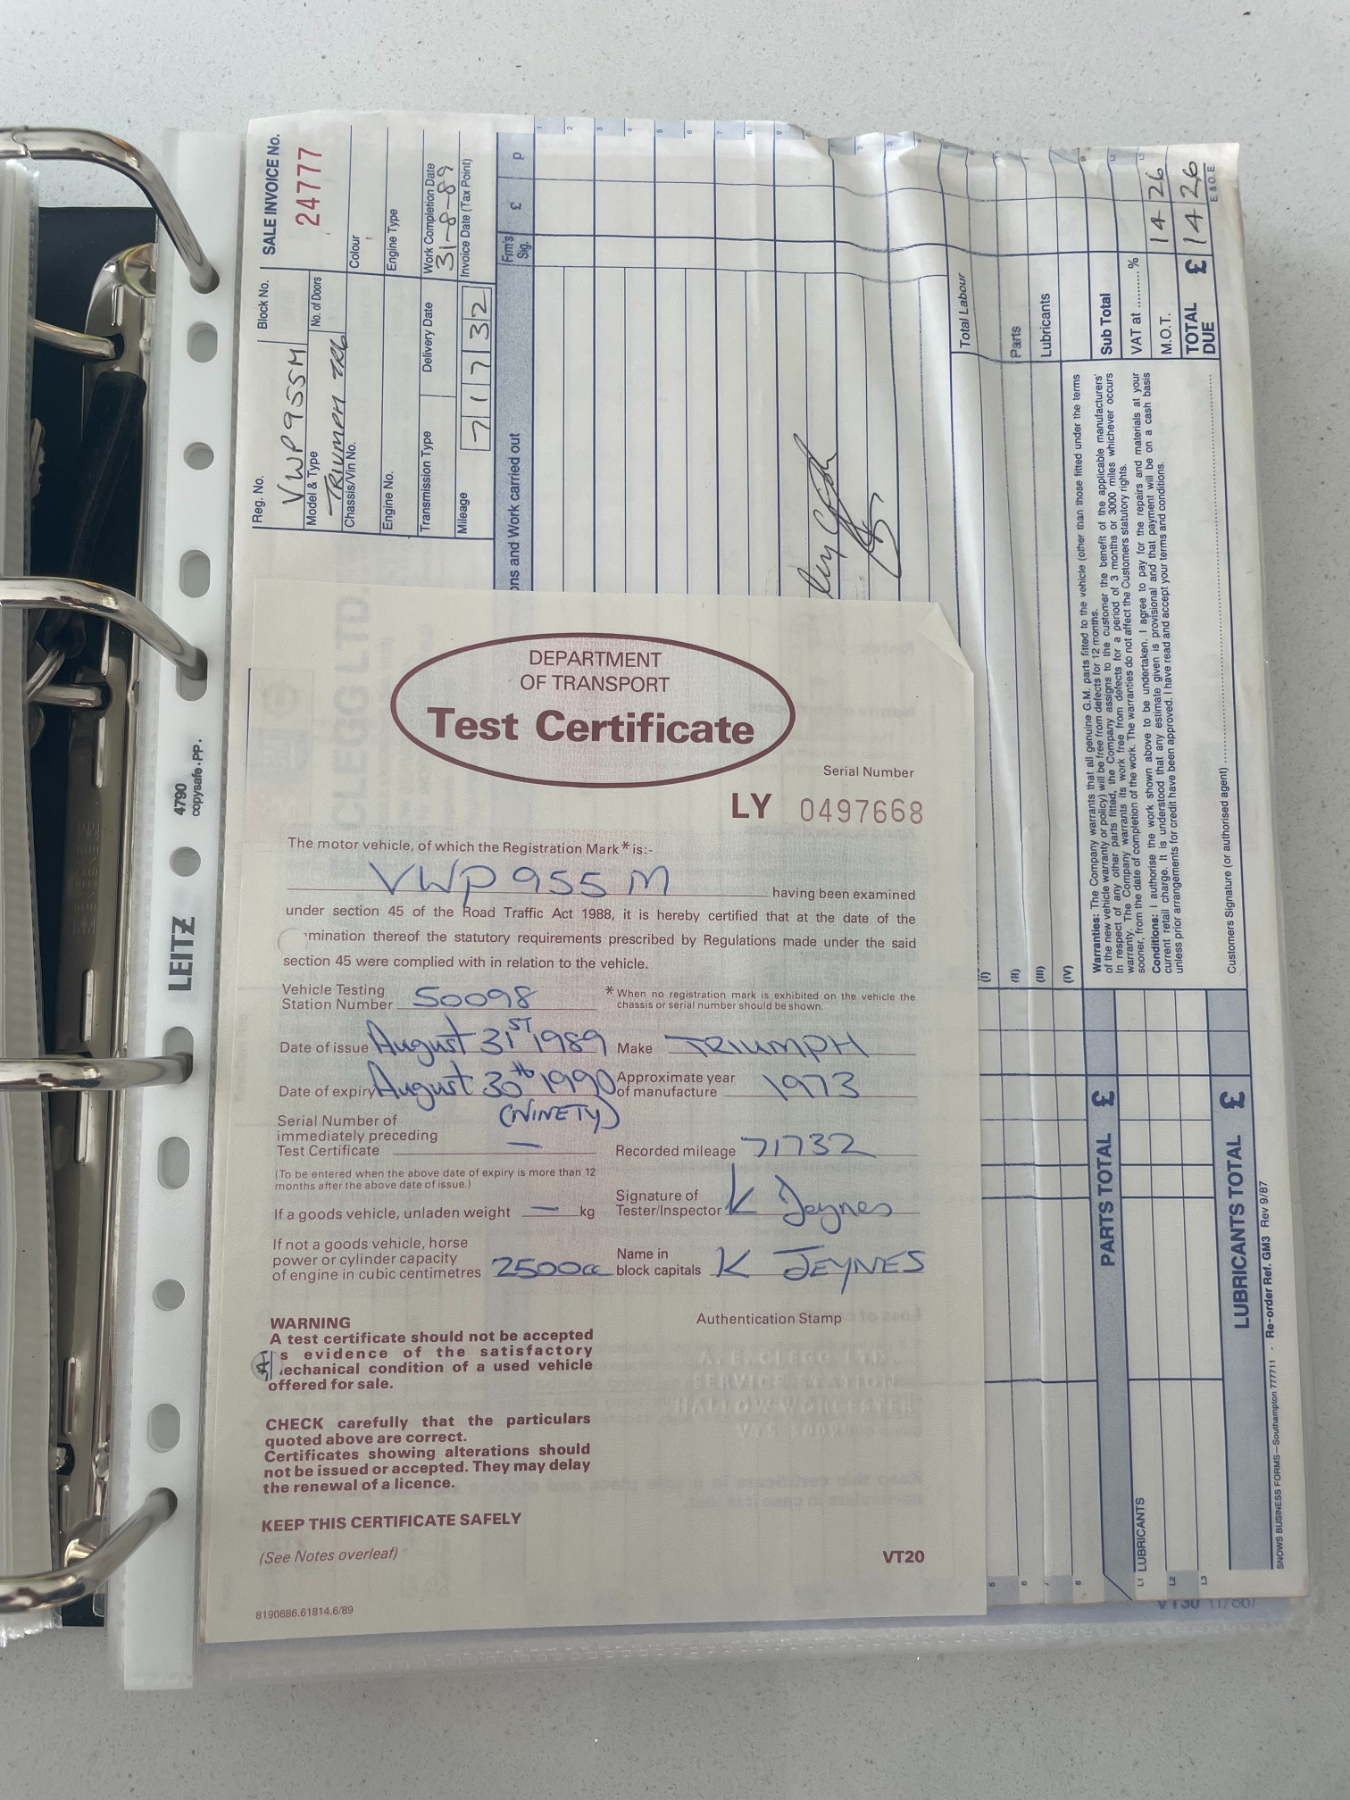 DEPARTMENT
OF TRANSPORT
Test Certificate
Serial Number
LY 0497668
The motor vehicle, of which the Registration Mark * is:-
VWP 955 M having been examined
under section 45 of the Road Traffic Act 1988, it is hereby certified that at the date of the
mination thereof the statutory requirements prescribed by Regulations made under the said
section 45 were complied with in relation to the vehicle.
Vehicle Testing
Station Number S0098
* When no registration mark is exhibited on the vehicle the
chassis or serial number should be shown.
Date of issue August 31ST 1989 Make TRIUMPH
Date of expiry August 30th 1990 (NINETY)
Approximate year
of manufacture 1973
Serial Number of
immediately preceding
Test Certificate —
Recorded mileage 71732
(To be entered when the above date of expiry is more than 12
months after the above date of issue.)
Signature of
Tester/Inspector K Jeynes
If a goods vehicle, unladen weight — kg
If not a goods vehicle, horse
power or cylinder capacity
of engine in cubic centimetres 2500cc
Name in
block capitals K JEYNES
WARNING
A test certificate should not be accepted
s evidence of the satisfactory
echanical condition of a used vehicle
offered for sale.
Authentication Stamp
A. E. CLEGG LTD.
SERVICE STATION
HALLOW WORCESTER
CHECK carefully that the particulars
quoted above are correct.
Certificates showing alterations should
not be issued or accepted. They may delay
the renewal of a licence.
KEEP THIS CERTIFICATE SAFELY
(See Notes overleaf)
VT20
8190686.61814.6/89
Reg. No.
VWP 955M
Block No.
SALE INVOICE No.
24777
Model & Type
TRIUMPH TR6
No. of Doors
Colour
Chassis/Vin No.
Engine No.
Engine Type
Transmission Type
Delivery Date
Work Completion Date
31-8-89
Mileage
71732
Invoice Date (Tax Point)
ons and Work carried out
Frm's
Sig.
£ p
Total Labour
Parts
Lubricants
Sub Total
VAT at .......... %
M.O.T. 14 26
TOTAL
DUE £ 14 26
E & O.E.
(I)
(II)
(III)
(IV)
Warranties: The Company warrants that all genuine G.M. parts fitted to the vehicle (other than those fitted under the terms
of the new vehicle warranty or policy) will be free from defects for 12 months.
In respect of any other parts fitted, the Company assigns to the customer the benefit of the applicable manufacturers'
warranty. The Company warrants its work free from defects for a period of 3 months or 3000 miles whichever occurs
sooner, from the date of completion of the work. The warranties do not affect the Customers statutory rights.
Conditions: I authorise the work shown above to be undertaken. I agree to pay for the repairs and materials at your
current retail charge. It is understood that any estimate given is provisional and that payment will be on a cash basis
unless prior arrangements for credit have been approved. I have read and accept your terms and conditions.
Customers Signature (or authorised agent)
PARTS TOTAL £
LUBRICANTS
L1
L2
L3
LUBRICANTS TOTAL £
SNOWS BUSINESS FORMS—Southampton 777711 - Re-order Ref. GM3 Rev 9/87
VT30 (1/86)
LEITZ
4790
copysafe-PP.